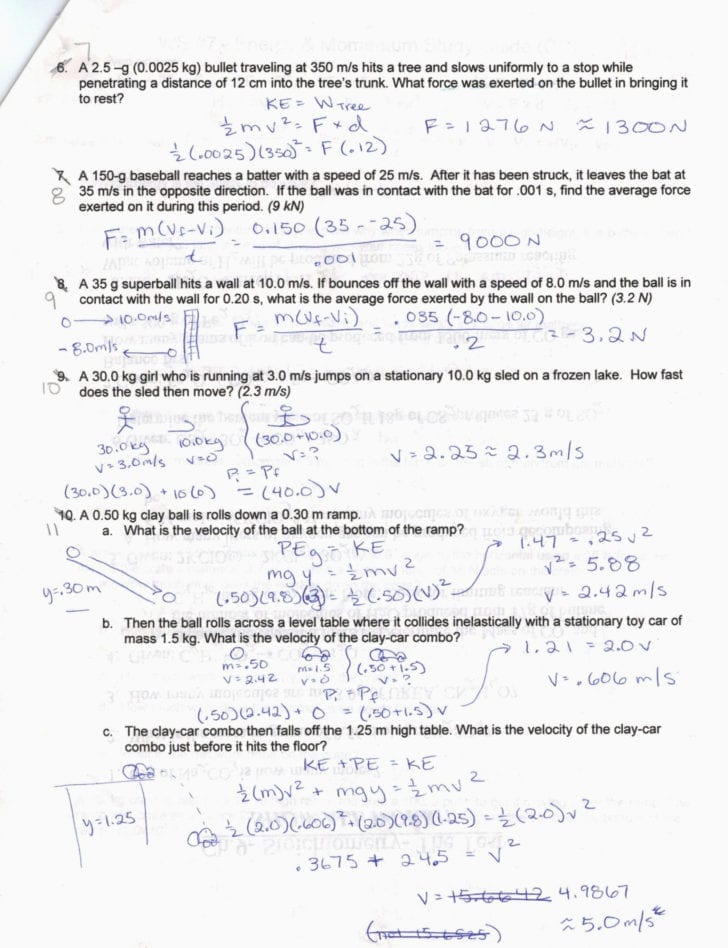 7
6. A 2.5 –g (0.0025 kg) bullet traveling at 350 m/s hits a tree and slows uniformly to a stop while
penetrating a distance of 12 cm into the tree's trunk. What force was exerted on the bullet in bringing it
to rest?
KE = W Tree
½ m v² = F * d F = 1276 N ≈ 1300 N
½ (.0025)(350)² = F (.12)
7. A 150-g baseball reaches a batter with a speed of 25 m/s. After it has been struck, it leaves the bat at
8 35 m/s in the opposite direction. If the ball was in contact with the bat for .001 s, find the average force
exerted on it during this period. (9 kN)
F = m(Vf - Vi) / t = 0.150 (35 - -25) / .001 = 9000 N
8. A 35 g superball hits a wall at 10.0 m/s. If bounces off the wall with a speed of 8.0 m/s and the ball is in
9 contact with the wall for 0.20 s, what is the average force exerted by the wall on the ball? (3.2 N)
10.0m/s
-8.0m/s
F = m(Vf - Vi) / t = .035 (-8.0 - 10.0) / .2 = - 3.2 N
9. A 30.0 kg girl who is running at 3.0 m/s jumps on a stationary 10.0 kg sled on a frozen lake. How fast
10 does the sled then move? (2.3 m/s)
30.0kg 10.0kg (30.0+10.0)
v = 3.0m/s v=0 v = ? v = 2.25 ≈ 2.3m/s
Pi = Pf
(30.0)(3.0) + 10(0) = (40.0) v
10. A 0.50 kg clay ball is rolls down a 0.30 m ramp.
11 a. What is the velocity of the ball at the bottom of the ramp?
PEg = KE 1.47 = .25 v²
mgy = ½ mv² v² = 5.88
y=.30m (.50)(9.8)(.3) = ½ (.50)(v)² v = 2.42 m/s
b. Then the ball rolls across a level table where it collides inelastically with a stationary toy car of
mass 1.5 kg. What is the velocity of the clay-car combo?
m=.50 m=1.5 (.50+1.5) 1.21 = 2.0 v
v = 2.42 v=0 v=?
Pi = Pf v = .606 m/s
(.50)(2.42) + 0 = (.50+1.5) v
c. The clay-car combo then falls off the 1.25 m high table. What is the velocity of the clay-car
combo just before it hits the floor?
KE + PE = KE
½(m)v² + mgy = ½ mv²
y=1.25
½ (2.0)(.606)² + (2.0)(9.8)(1.25) = ½ (2.0) v²
.3675 + 24.5 = v²
v = 15.6642 4.9867
(not 15.6525) ≈ 5.0 m/s